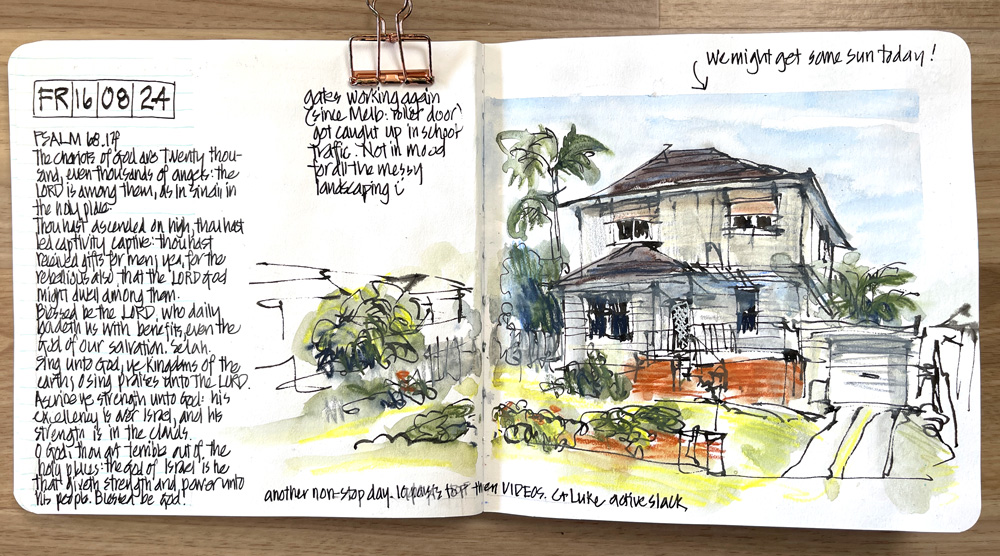 FR 16 08 24
PSALM 68.17f
The chariots of God are twenty thou-
sand, even thousands of angels: the
LORD is among them, as in Sinai in
the holy place.
Thou hast ascended on high, thou hast
led captivity captive: thou hast
received gifts for men; yea, for the
rebellious also that the LORD God
might dwell among them.
Blessed be the LORD, who daily
loadeth us with benefits, even the
God of our salvation. Selah.
Sing unto God, ye kingdoms of the
earth; O sing praises unto the LORD.
Ascribe ye strength unto God: his
excellency is over Israel, and his
strength is in the clouds.
O God, thou art terrible out of the
holy places: the God of Israel is he
that giveth strength and power unto
his people. Blessed be God!
gates working again
(since Melb: roller door)
got caught up in school
traffic. Not in mood
for all the messy
landscaping
We might get some sun today!
another non-stop day. then VIDEOS. Luke active slack